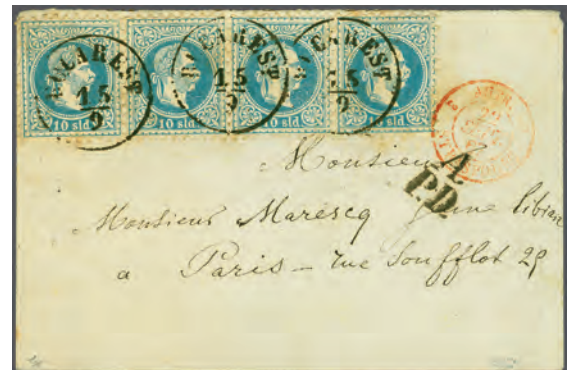 BUCAREST
15/9
BUCAREST
15/9
BUCAREST
15/9
10 sld. 10 sld. 10 sld. 10 sld.
Monsieur
P.D.
Monsieur Marescq Jeune libian
a Paris – rue Soufflot 29